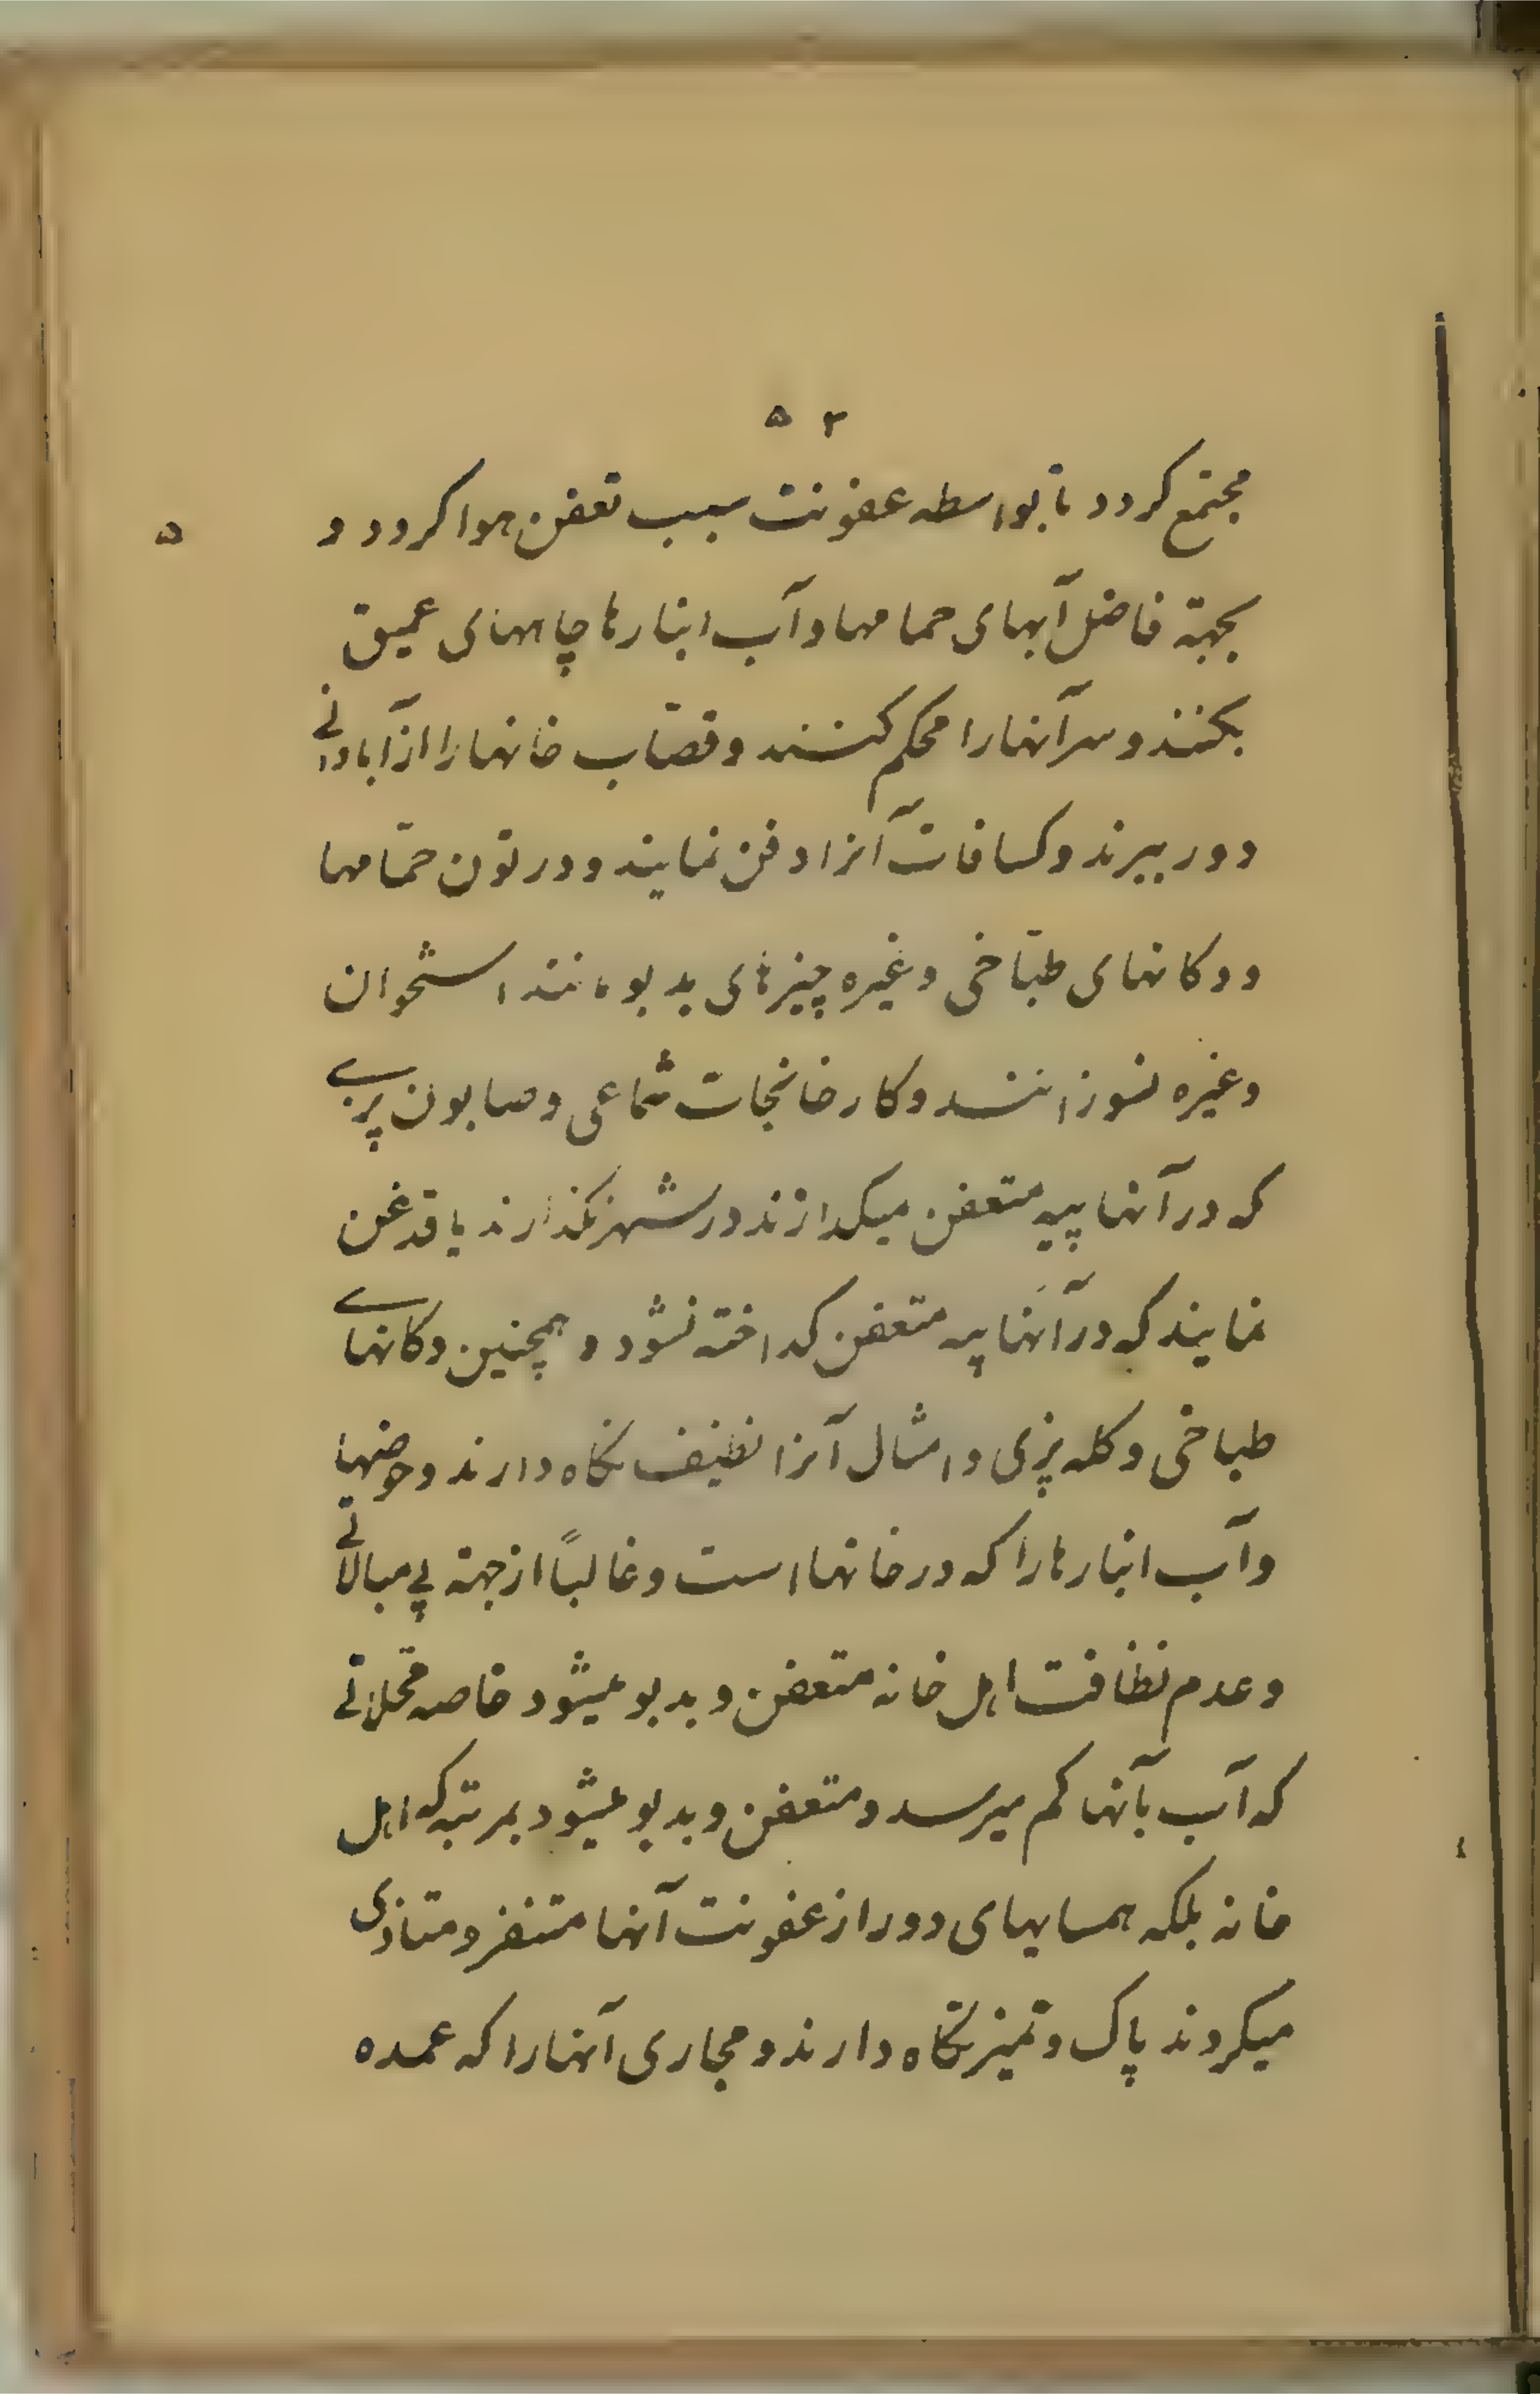 ۵۲
مجتمع کردد تا بواسطه عفونت سبب تعفن هوا کردد و
بجهتة فاضل آبهای حمامها و آب انبارها چاههای عمیق
بکنند و سر آنها را محکم کنند و قصّاب خانها را از آبادانے
دور ببرند و کسافات آنرا دفن نمایند و در تون حمّامها
و دکانهای طبّاخی و غیره چیزهای بد بو مانند استخوان
و غیره نسوزانند و کارخانجات شماعی و صابون پزے
که در آنها پیه متعفن میکدازند در شهر نکذارند یا قدغن
نمایند که در آنها پیه متعفن کداخته نشود و همچنین دکانهاے
طباخی و کله پزی و امثال آنرا نظیف نکاه دارند و حوضها
و آب انبارها را که در خانها است و غالباً از جهتة بی مبالاتے
و عدم نظافت اهل خانه متعفن و بد بو میشود خاصه محلاتے
که آب بآنها کم میرسد و متعفن و بد بو میشود بمرتبه که اهل
خانه بلکه همسایهای دور از عفونت آنها متنفر و متاذی
میکردند پاک و تمیز نکاه دارند و مجاری آنها را که عمده